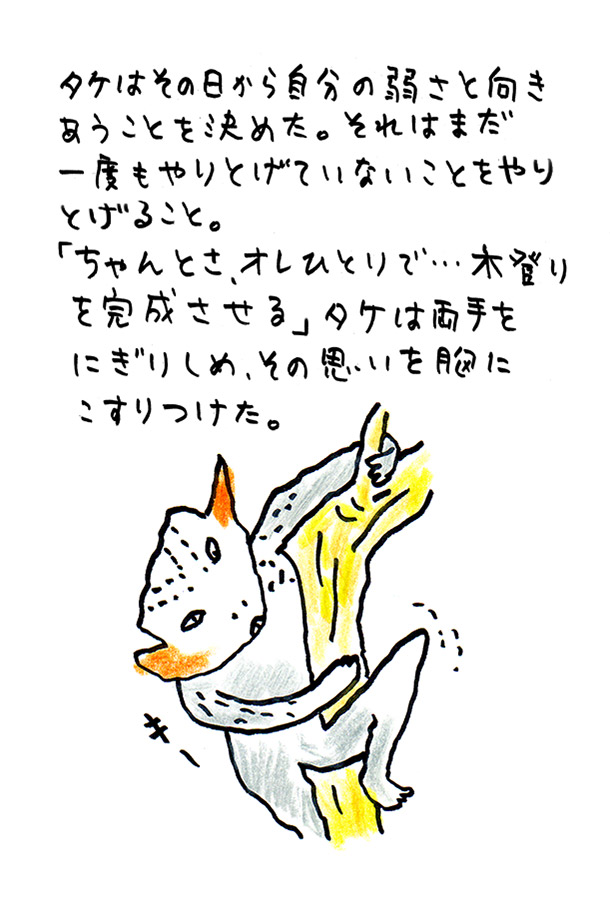 タケはその日から自分の弱さと向き
あうことを決めた。それはまだ
一度もやりとげていないことをやり
とげること。
「ちゃんとさ、オレひとりで…木登り
を完成させる」タケは両手を
にぎりしめ、その思いを胸に
こすりつけた。
キー